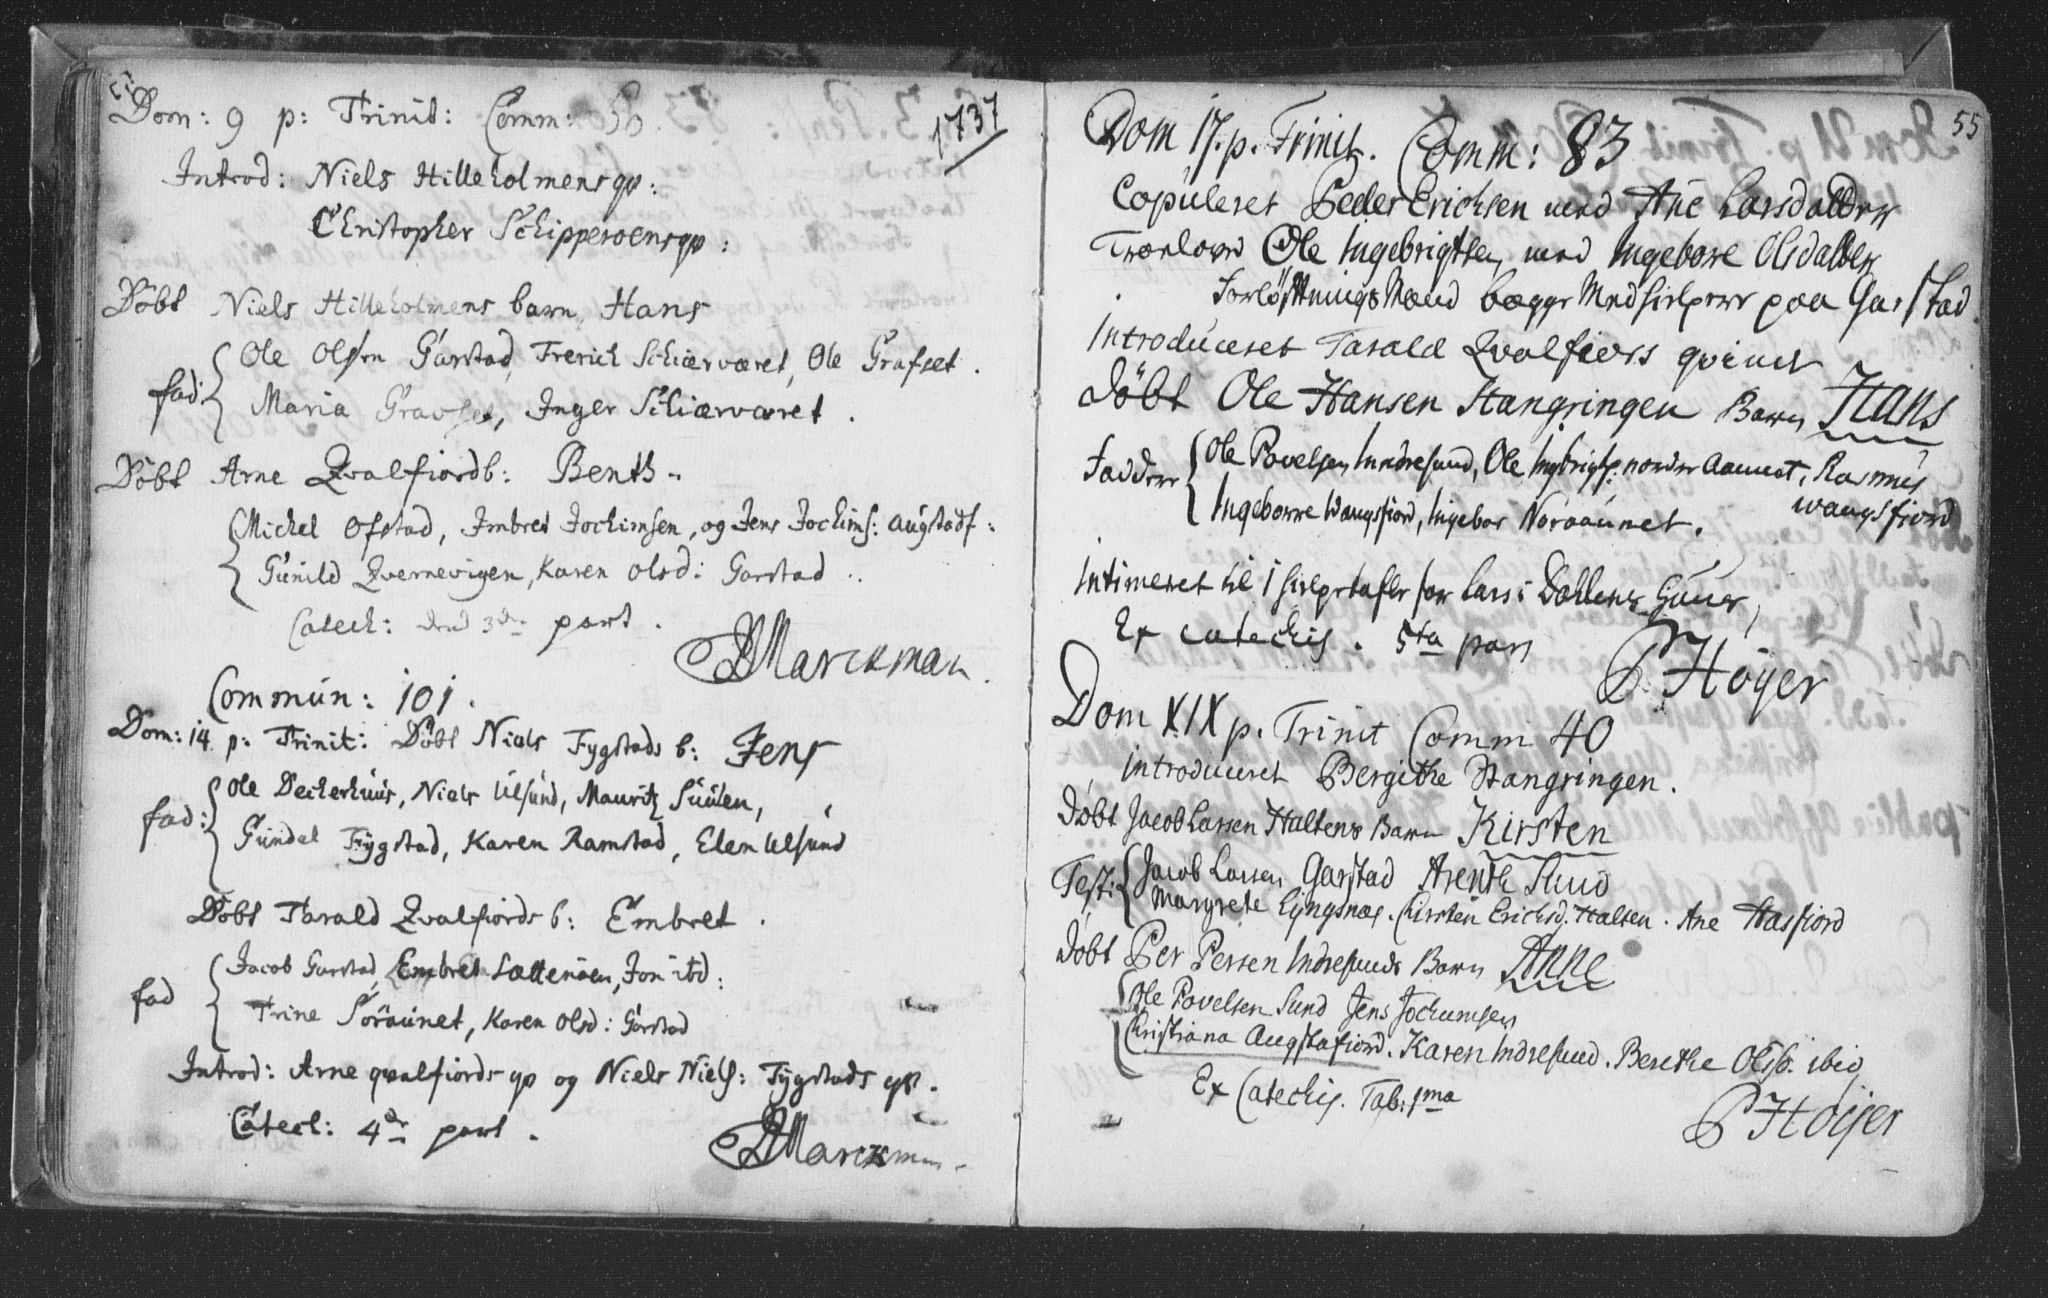 Dom: 9 p: Trinit: Comm: 1737
Introd: Niels Hilleholmens qv:
Christopher Schipperoens qv:
Döbt Niels Hilleholmens barn, Hans
Ole Olsen Garstad, Frerich Schiærværet, Ole Grafset.
fad:
Maria Gravset, Inger Schiærværet.
Döbt Arne Qvalfiords b: Benth
Michel Ofstad, Imbret Jochimsen, og Jens Jochims: Augstadf:
Gunild Qvernevigen, Karen Olsd: Garstad
Catech: dend 3de part.
Marckman.
Commun: 101.
Dom: 14 p: Trinit: Döbt Niels Tygstads b: Jens
Ole Deckerhuus, Niels Ulsund, Mauritz Suulen,
fad:
Gundel Tygstad, Karen Ramstad, Elen Ulsund
Döbt Tarald Qvalfiords b: Embret.
Jacob Garstad, Embret Lættenöen, Jon ibd:
fad
Trine Söraunet, Karen Olsd: Garstad
Introd: Arne qvalfiords qv og Niels Niels: Tygstads qv.
Catech: 4de part.
Marckman
55
Dom 17. p. Trinit. Comm: 83
Copuleret Peder Erichsen med Ane Larsdatter
Troelovd Ole Ingebrigtsen med Ingeborre Olsdatter
Forløftnings Mænd begge Medhielpere paa Garstad.
Introduceret Tarald Qvalfiors qvind
Döbt Ole Hansen Stangringen Barn Hans
Faddere Ole Povelsen Indresund, Ole Ingbrigts: norder Aunet, Rasmus
Wangsfiord
Ingeborre Wangsfiord, Ingebor Noraunet.
Intimeret til i for Lars i Gaver,
Ex catechis. 5ta pars
P. Höyer
Dom XIX p. Trinit Comm 40
introduceret Bergithe Stangringen.
Döbt Jacob Larsen Haltens Barn Kirsten
Test: Jacob Larsen Garstad Arenth Sund
Margrete Lyngsnæs. Kirsten Erichsd: Halten. Ane Hasfiord
Döbt Per Persen Indresunds Barn Anne
Ole Povelsen Sund Jens Jochumsen
Christiana Augstafiord. Karen Indresund. Berethe Olsd. ibid
Ex Catechis. Tab: 1ma
P Höyer